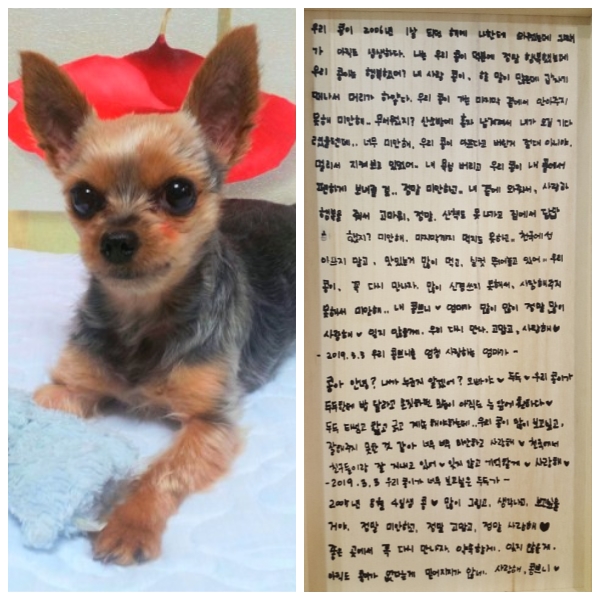 우리 콩이 2006년 1살 되던 해에 나한테 와줬는데 그때
가 아직도 생생하다. 나는 우리 콩이 덕분에 정말 행복했는데
우리 콩이는 행복했어? 내 사랑 콩이, 할 말이 많은데 갑자기
떠나서 머리가 하얗다. 우리 콩이 가는 마지막 곁에서 안아주지
못해 미안해.. 무서웠지? 산소방에 혼자 남겨져서 내가 오길 기다
렸을텐데.. 너무 미안해. 우리 콩이 아프다고 버린거 절대 아니야.
멀리서 지켜보고 있었어. 내 욕심 버리고 우리 콩이 내 품에서
편하게 보내줄 걸.. 정말 미안하고, 내 곁에 와줘서, 사랑과
행복을 줘서 고마워, 정말. 산책도 못 나가고 집에서 답답
했지? 미안해. 마지막까지 먹지도 못하고.. 천국에선
아프지 말고, 맛있는거 많이 먹고, 실컷 뛰어놀고 있어.. 우리
콩이, 꼭 다시 만나자. 많이 신경쓰지 못해서, 사랑해주지
못해서 미안해.. 내 콩쁘니♥ 엄마가 많이 많이 정말 많이
사랑해♥ 잊지 않을게. 우리 다시 만나. 고맙고, 사랑해♥
- 2019.3.3 우리 콩쁘니를 엄청 사랑하는 엄마가 -
콩아 안녕? 내가 누군지 알겠어? 오빠야♥ 두두♥ 우리 콩이가
두두한테 밥 달라고 조르던 모습이 아직도 눈 앞에 훤하다♥
두두 떠나고 울고 웃고 계속 해야하는데.. 우리 콩이 많이 보고싶고,
잘해주지 못한 것 같아 너무 너무 미안하고 사랑해♥ 천국에서
친구들이랑 잘 지내고 있어♥ 잊지 않고 기억할게♥ 사랑해♥
- 2019.3.3 우리 콩이가 너무 보고싶은 두두가 -
2005년 8월 4일생 콩♥ 많이 그립고, 생각나고, 보고싶을
거야. 정말 미안하고, 정말 고맙고, 정말 사랑해♥
좋은 곳에서 꼭 다시 만나자. 약속할게. 잊지 않을게.
아직도 콩이가 없다는게 믿어지지가 않네. 사랑해, 콩쁘니♥